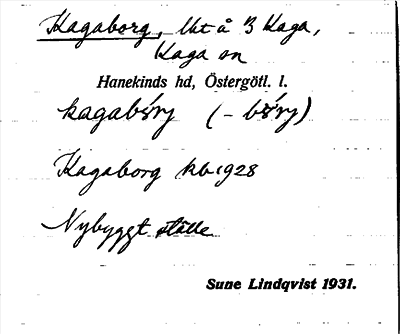 Kagaborg, lht å 3 Kaga,
Kaga sn
Hanekinds hd, Östergötl. l.
kagabory (- bory)
Kagaborg kb 1928
Nybyggt ställe
Sune Lindqvist 1931.